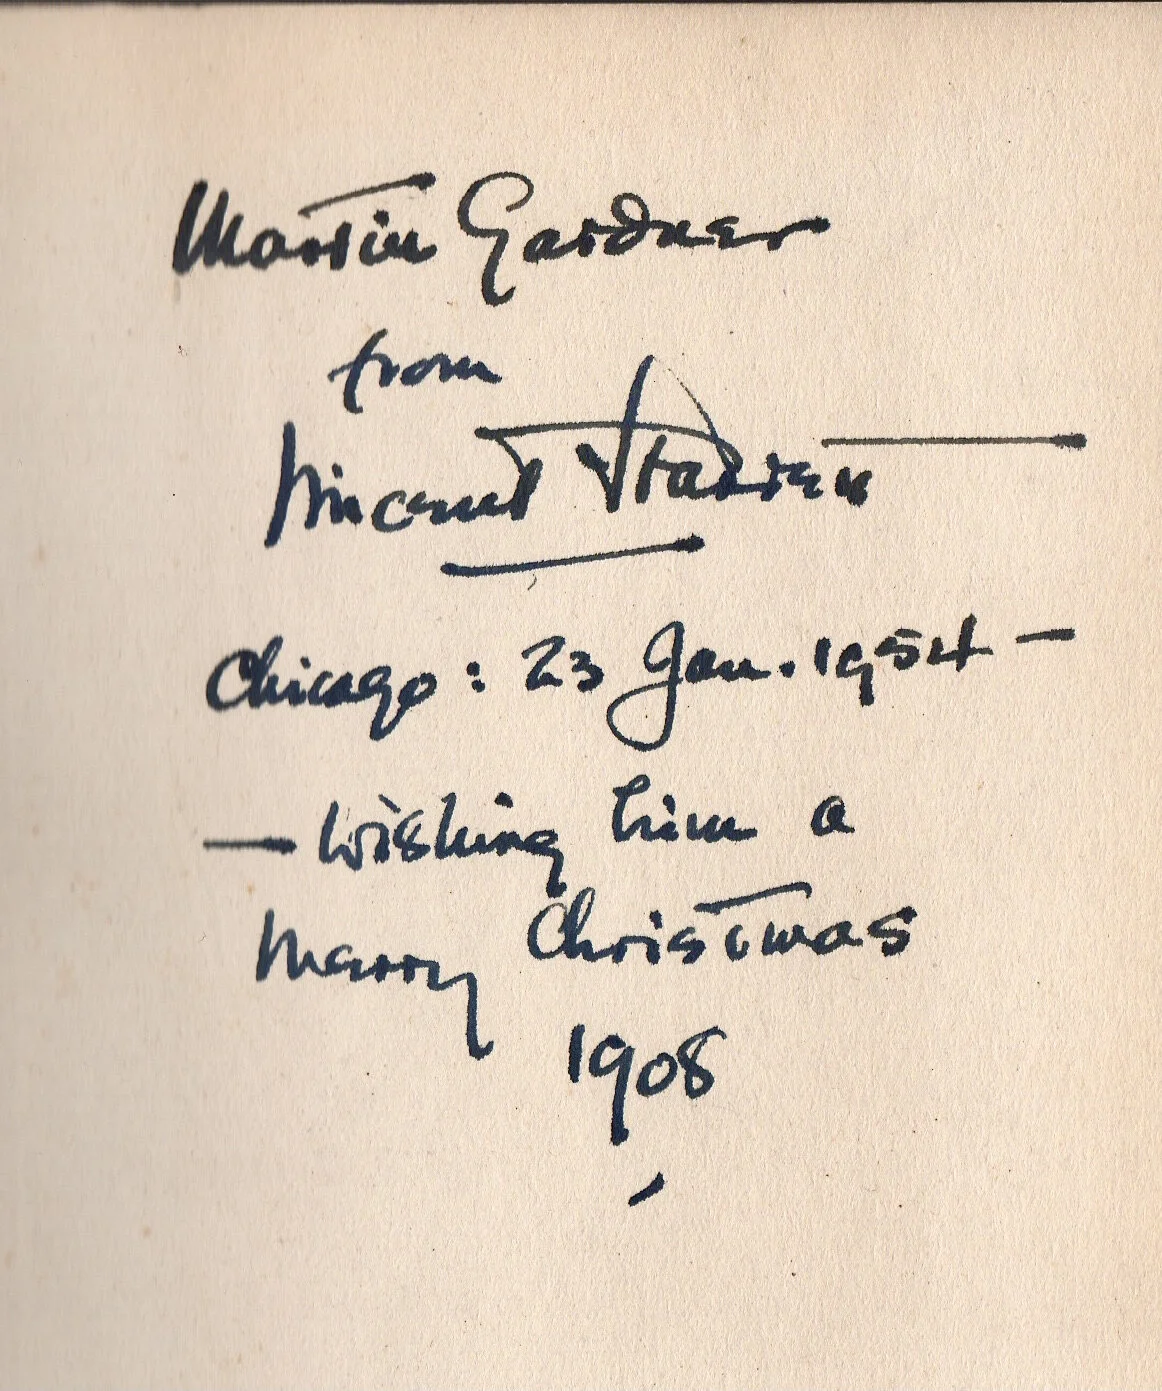 Martin Gardner
from
Vincent Starrett
Chicago: 23 Jan. 1954 —
— wishing him a
Merry Christmas
1908